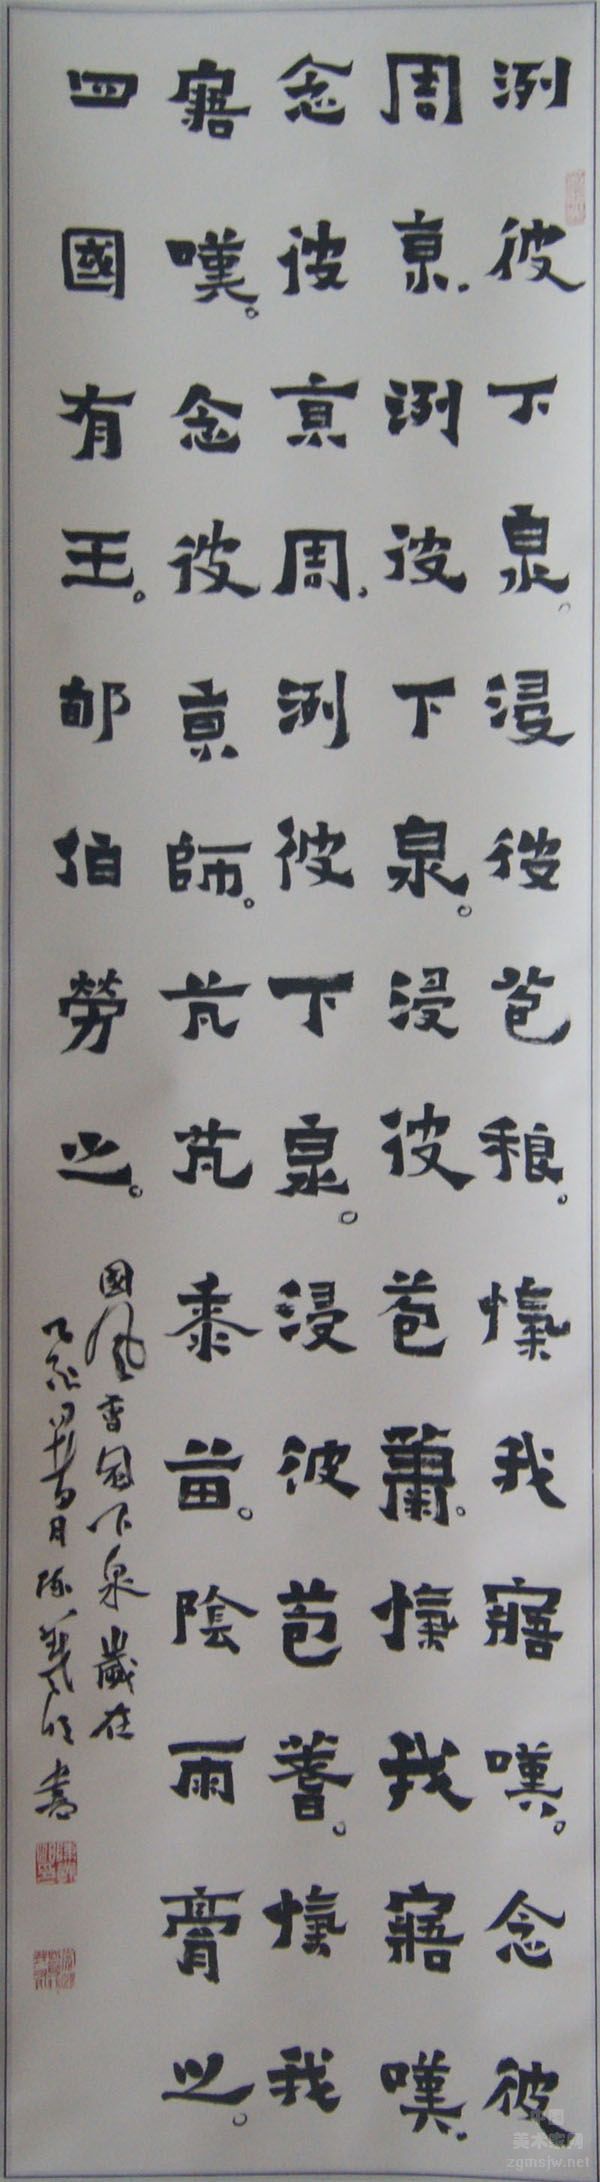 洌彼下泉。浸彼苞稂。愾我寤嘆。念彼
周京.洌彼下泉。浸彼苞蕭.愾我寤嘆.
念彼京周,洌彼下泉。浸彼苞蓍。愾我
寤嘆。念彼京師。芃芃黍苗。陰雨膏之。
四國有王。郇伯勞之。
國風下泉歲在
乙亥月書
中国
美术家网
zgmsjw.net